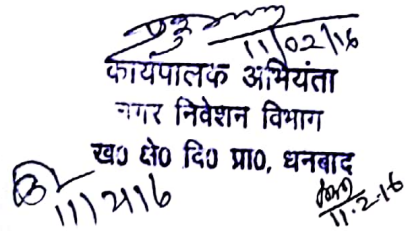 11/02/16
कार्यपालक अभियंता
नगर निवेशन विभाग
ख० क्षे० वि० प्रा०, धनबाद
11/2/16
11.2.16